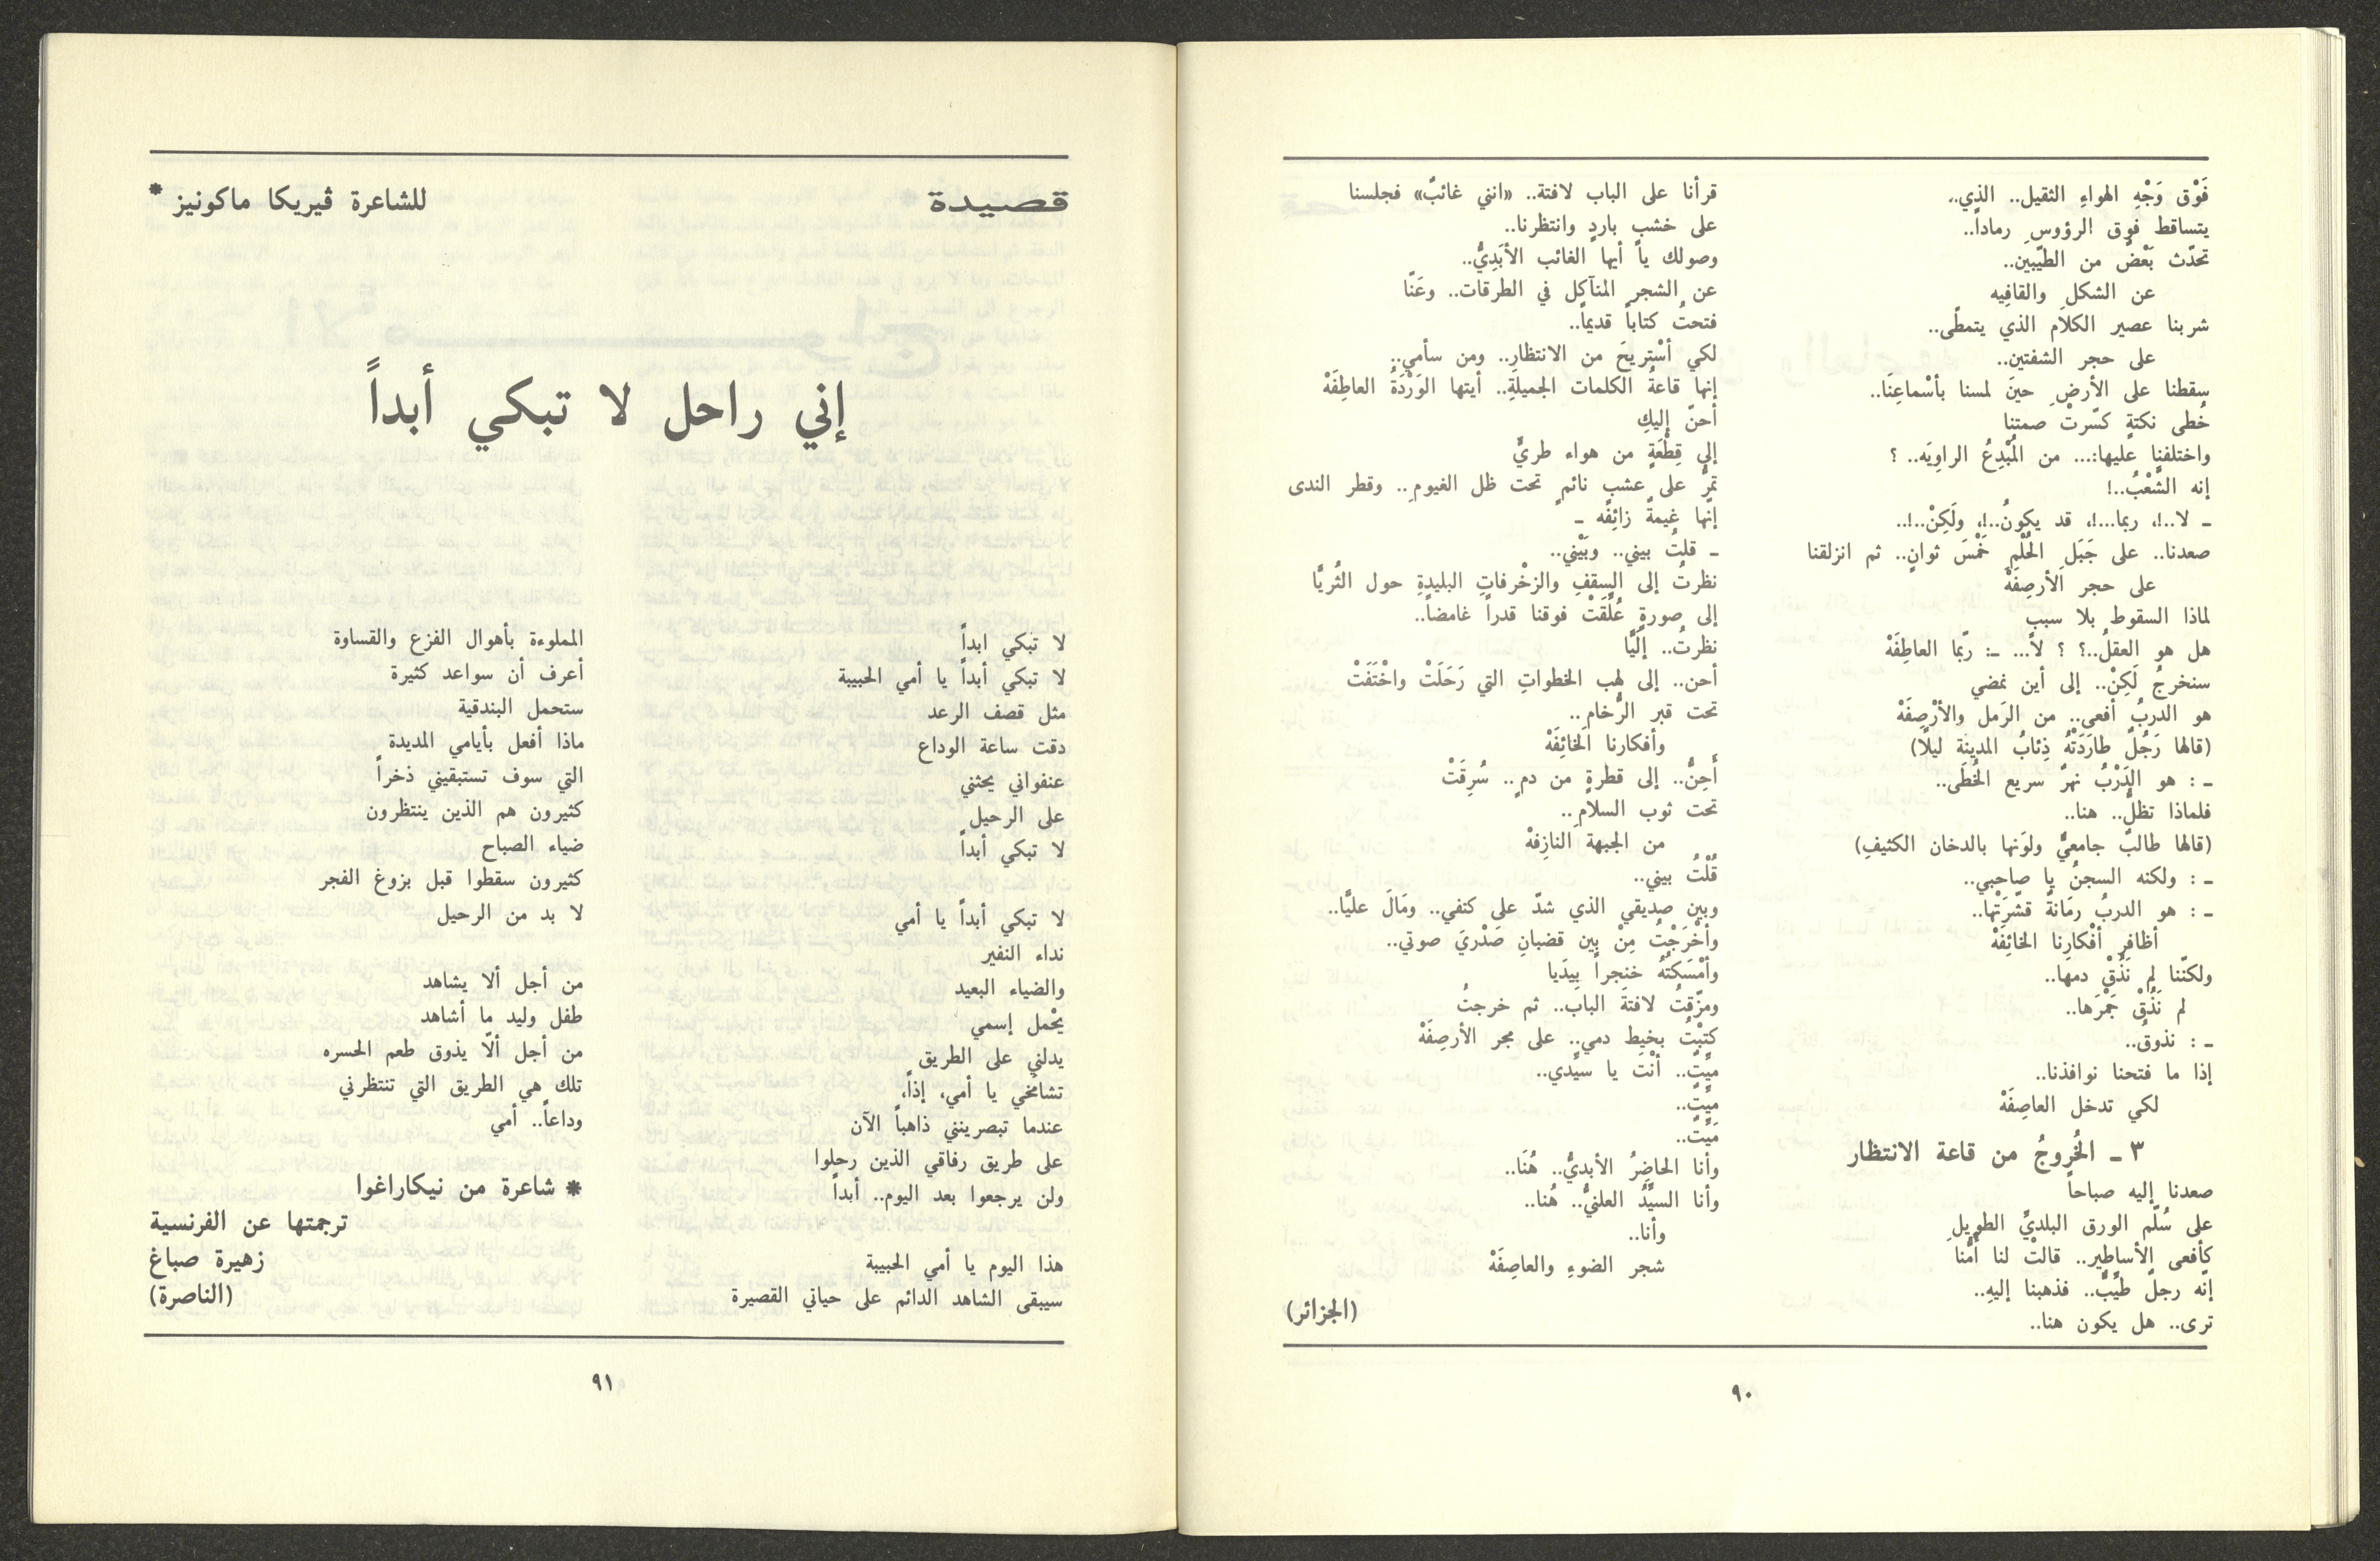 فَوْق وَجْهِ الهواءِ الثقيل.. الذي..
يتساقط فوق الرؤوسِ رماداً..
تحدّث بَعْضُ من الطيّبين..
عن الشكلِ والقافِيه
شربنا عصير الكلام الذي يتمطّى..
على حجر الشفتين..
سقطنا على الأرضِ حينَ لمسنا بأسْماعِنَا..
خُطى نكتةٍ كسّرتْ صمتنا
واختلفنا عليها:... من المُبْدِعُ الراوِيَه.. ؟
إنه الشَّعْبُ..!
ـ لا..!، ربما...!، قد يكونُ..!، ولَكِنْ..!..
صعدنا.. على جَبَل الحُلْمِ خَمْسَ ثوانٍ.. ثم انزلقنا
على حجر الأرصِفَهْ
لماذا السقوط بلا سببٍ
هل هو العقلُ..؟ ؟ لاَ... ـ: ربّما العاطِفَهْ
سنخرجُ لَكِنْ.. إلى أين نمضي
هو الدربُ أفعى.. من الرَمل والأرْصِفَهْ
(قالها رَجُلٌ طارَدَتْهُ ذِئابُ المدينة ليلًا)
ـ : هو الدَرْبُ نهرٌ سريع الخُطَى..
فلماذا تظلُّ.. هنا..
(قالها طالبٌ جامعيٌّ ولوَنها بالدخان الكثيفِ)
ـ : ولكنه السجنُ يا صاحبي..
ـ : هو الدربُ رمّانةٌ قشّرَتْها..
أظافر أفْكارِنا الخائِفَهْ
ولكنّنا لم نَذُقْ دمها..
لم نَذُقْ جَمْرَها..
ـ : نذوقُ..
إذا ما فتحنا نوافذنا..
لكي تدخل العاصِفَهْ
٣ ـ الخُروجُ من قاعة الانتظار
صعدنا إليه صباحاً
على سُلّم الورق البلديِّ الطويلِ
كأفعى الأساطير.. قالتْ لنا أُمُّنا
إنّه رجلٌ طيّبٌ.. فذهبنا إليهِ..
ترى.. هل يكون هنا..
قرأنا على الباب لافتة.. «انني غائبٌ» فجلسنا
على خشبٍ باردٍ وانتظرنا..
وصولك يا أيها الغائب الأبَدِيُّ..
عن الشجر المتآكل في الطرقات.. وعَنّا
فتحتُ كتاباً قديماً..
لكي أسْتريحَ من الانتظارِ.. ومن سأمي..
إنها قاعةُ الكلمات الجميلةِ.. أيتها الوَرْدَةُ العاطِفَهْ
أحنّ إليكِ
إلى قِطْعَةٍ من هواء طريٍّ
تمرُّ على عشبٍ نائمٍ تحت ظل الغيومِ.. وقطر الندى
إنّها غيمةٌ زائِفَه ـ
ـ قلتُ بيني.. وبَيْني..
نظرتُ إلى السقفِ والزخْرفاتِ البليدةِ حول الثُريَّا
إلى صورةٍ عُلِّقَتْ فوقنا قدراً غامضاً..
نظرتُ.. إلَيَّا
أحن.. إلى لهب الخطواتِ التي رَحَلَتْ واخْتَفَتْ
تحت قبر الرُّخامِ..
وأفكارنا الخائِفَهْ
أحِنُّ.. إلى قطرةٍ من دمٍ.. سُرِقَتْ
تحت ثوب السلامِ..
من الجبهة النازِفهْ
قُلْتُ بيني..
وبين صديقي الذي شدّ على كتفي.. ومَالَ عليَّا..
وأخْرَجْتُ مِنْ بين قضبانِ صَدْريَ صوتي..
وأمْسَكتُهُ خنجراً بِيدَيا
ومزّقتُ لافتةَ الباب.. ثم خرجتُ
كتبْتُ بخيط دمي.. على مجر الأرصِفَهْ
ميّتٌ.. أنْتَ يا سيّدي..
ميّتٌ..
مَيّت..
وأنا الحاضِرُ الأبديُّ.. هُنَا..
وأنا السيِّدُ العلنيُّ.. هُنا..
وأنا..
شجر الضوءِ والعاصِفَهْ
(الجزائر)
٩٠
قصيدة
للشاعرة ڤيريكا ماكونيز *
إني راحل لا تبكي أبداً
لا تبكي ابداً
لا تبكي أبداً يا أمي الحبيبة
مثل قصف الرعد
دقت ساعة الوداع
عنفواني يحثني
على الرحيل
لا تبكي أبداً
لا تبكي أبداً يا أمي
نداء النفير
والضياء البعيد
يحْمل إسمي
يدلني على الطريق
تشامخي يا أمي، إذاً،
عندما تبصرينني ذاهباً الآن
على طريق رفاقي الذين رحلوا
ولن يرجعوا بعد اليوم.. أبداً
هذا اليوم يا أمي الحبيبة
سيبقى الشاهد الدائم على حياتي القصيرة
المملوءة بأهوال الفزع والقساوة
أعرف أن سواعد كثيرة
ستحمل البندقية
ماذا أفعل بأيامي المديدة
التي سوف تستبقيني ذخراً
كثيرون هم الذين ينتظرون
ضياء الصباح
كثيرون سقطوا قبل بزوغ الفجر
لا بد من الرحيل
من أجل ألا يشاهد
طفل وليد ما أشاهد
من أجل ألاّ يذوق طعم الحسره
تلك هي الطريق التي تنتظرني
وداعاً.. أمي
* شاعرة من نيكاراغوا
ترجمتها عن الفرنسية
زهيرة صباغ
(الناصرة)
٩١